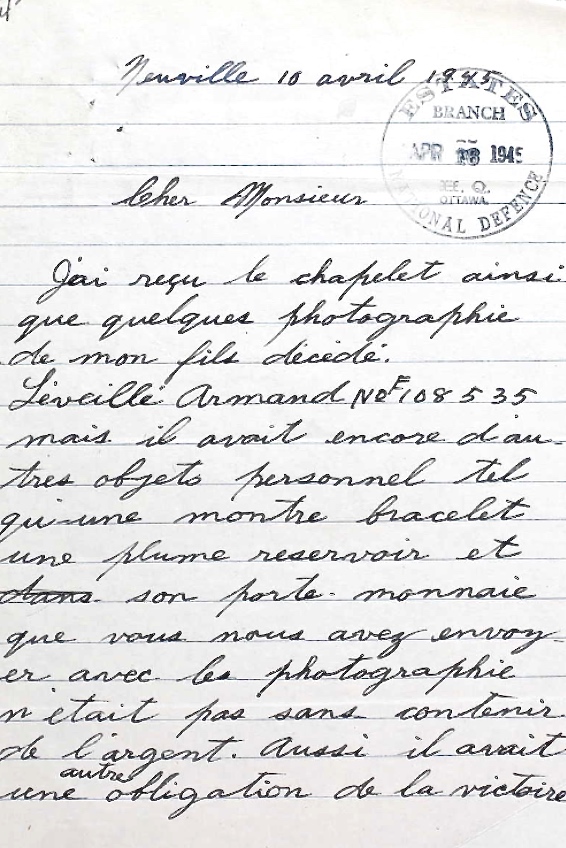 Neuville 10 avril 1945
ESTATES
BRANCH
APR 1945
OTTAWA.
NATIONAL DEFENCE
Cher Monsieur
J'ai reçu le chapelet ainsi
que quelques photographie
de mon fils décédé.
Léveillé Armand No E108535
mais il avait encore d'au-
tres objets personnel tel
qu-une montre bracelet
une plume reservoir et
dans son porte-monnaie
que vous nous avez envoy-
er avec les photographie
n'était pas sans contenir
de l'argent. Aussi il avait
autre
une obligation de la victoire